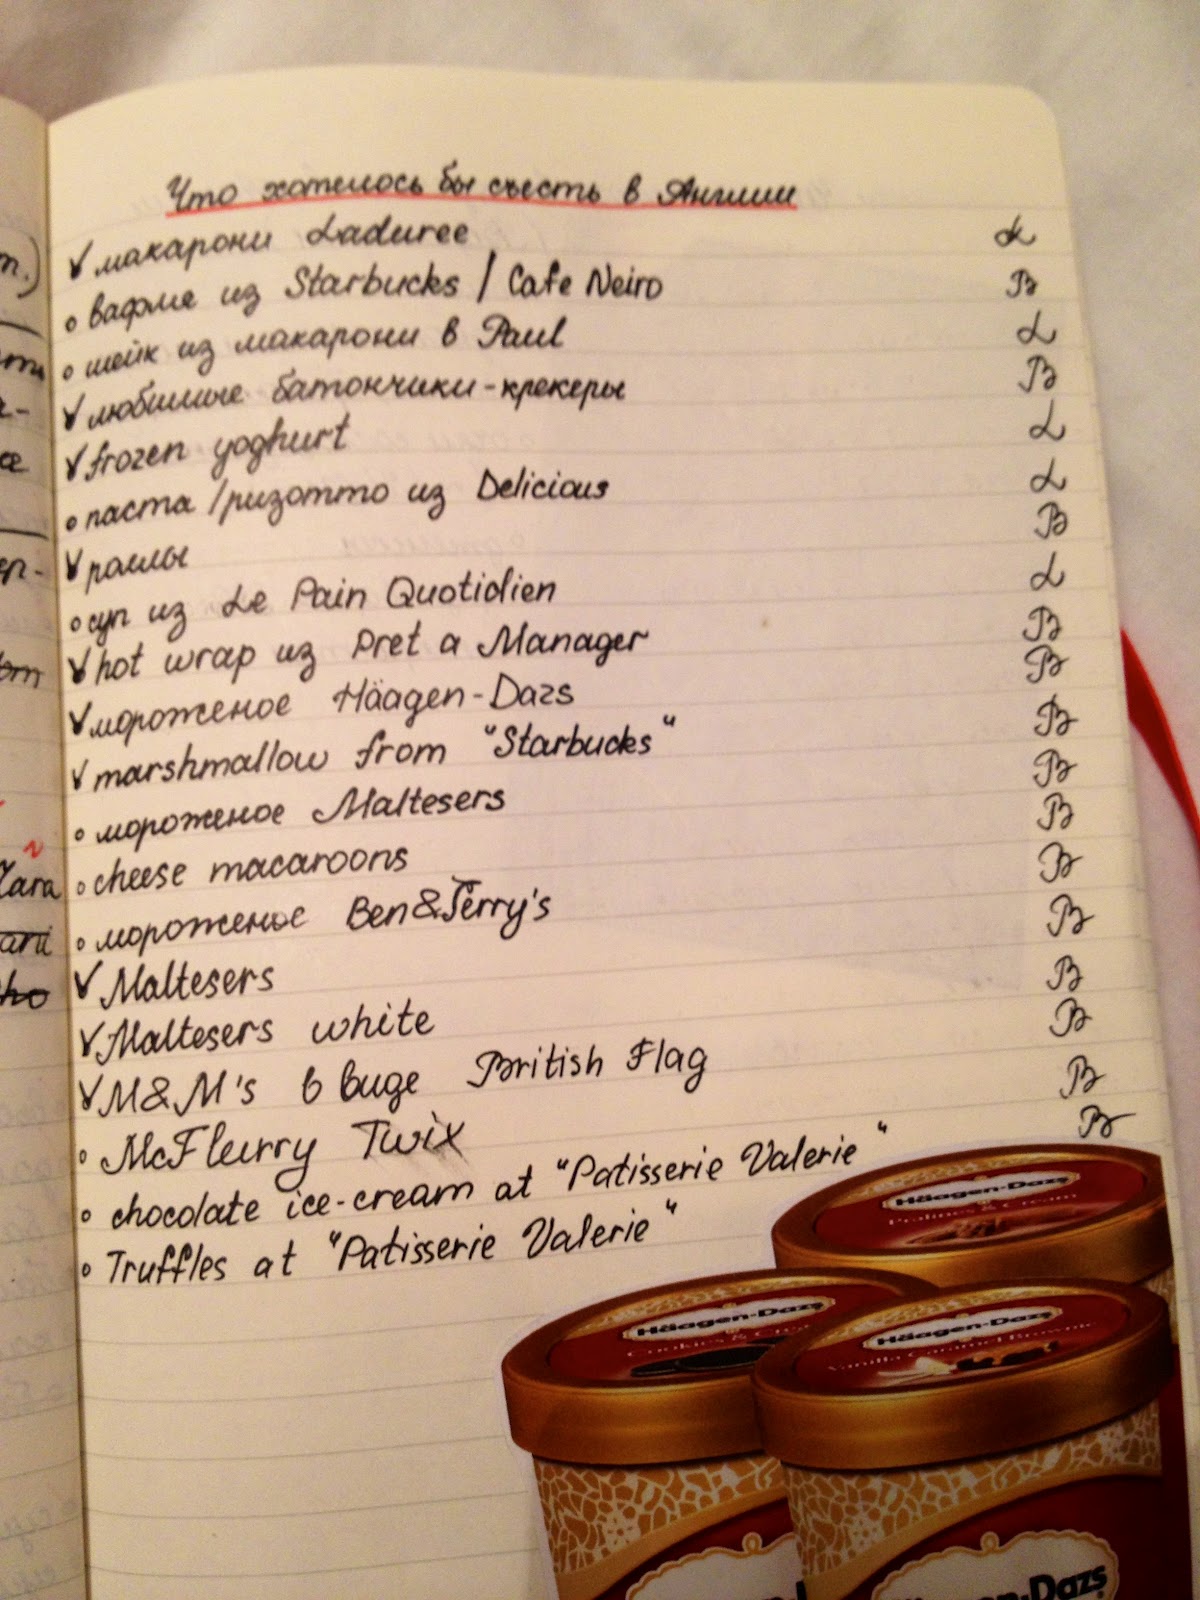 Что хотелось бы съесть в Англии
макарони Laduree L
вафле из Starbucks / Cafe Neiro B
шейк из макарони в Paul L
любимые батончики-крекеры B
frozen yoghurt L
паста / ризотто из Delicious L
роллы B
суп из Le Pain Quotidien L
hot wrap из Pret a Manager B
мороженое Häagen-Dazs B
marshmallow from "Starbucks" B
мороженое Maltesers B
cheese macaroons B
мороженое Ben&Jerry's B
Maltesers B
Maltesers white B
M&M's в виде British Flag B
McFlurry Twix B
chocolate ice-cream at "Patisserie Valerie" B
Truffles at "Patisserie Valerie"
Häagen-Dazs
Pralines & Cream
Häagen-Dazs
Cookies & Crea
Häagen-Dazs
Vanilla Caramel Brownie
Zara